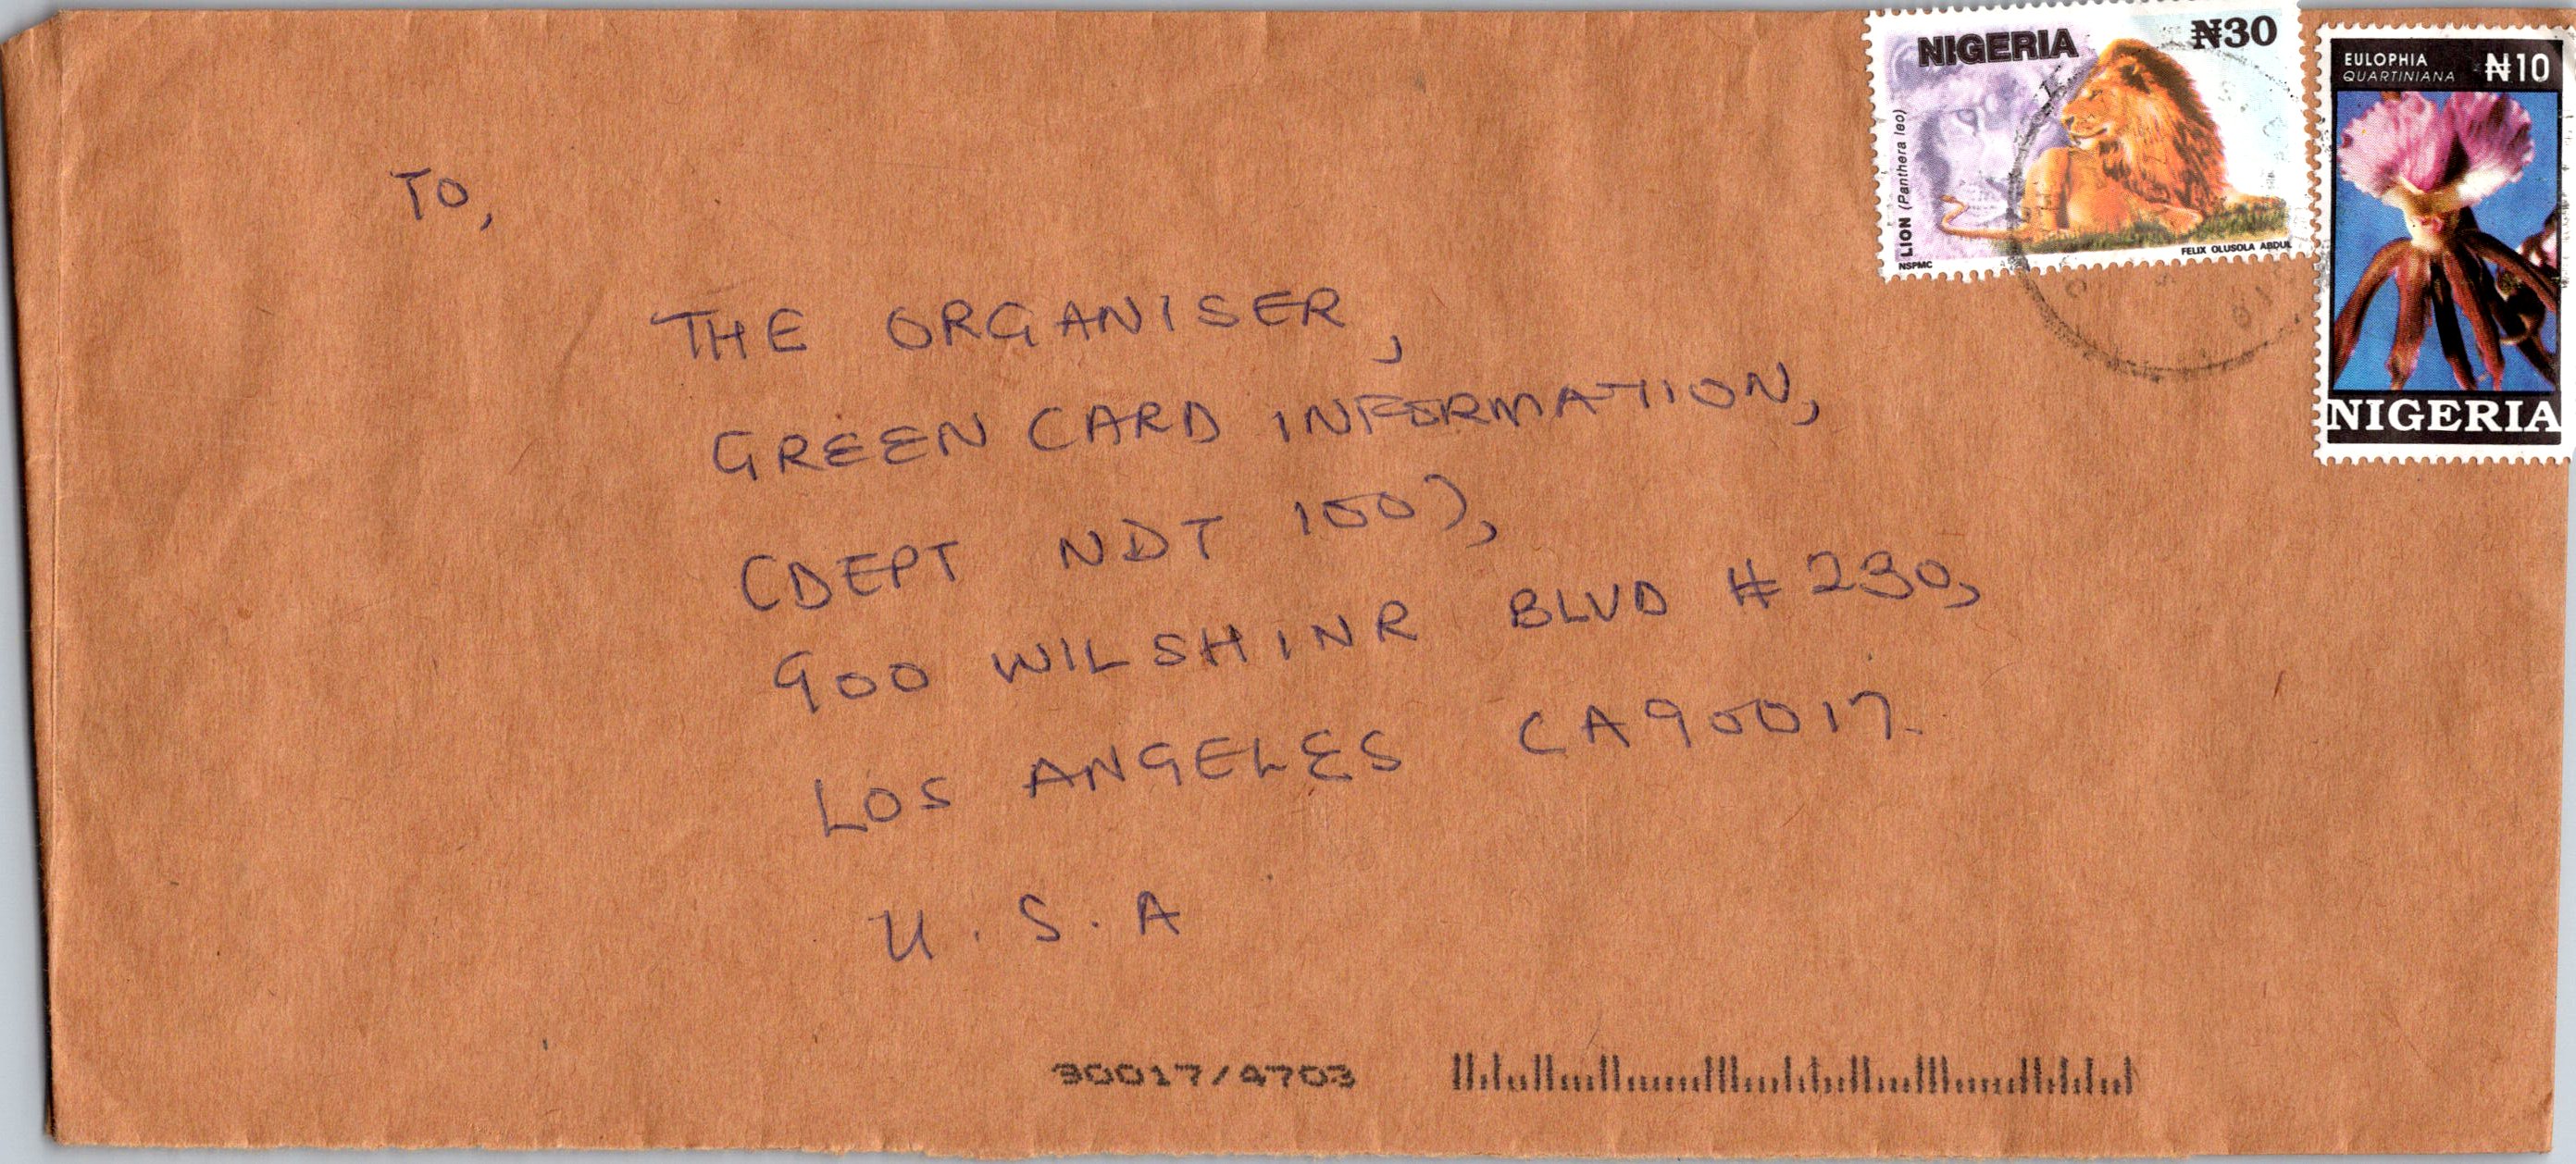 NIGERIA ₦30
LION (Panthera leo)
NSPMC
FELIX OLUSOLA ABDUL
EULOPHIA ₦10
QUARTINIANA
NIGERIA
TO,
THE ORGANISER,
GREEN CARD INFORMATION,
(DEPT NDT 100),
900 WILSHINR BLVD #230,
LOS ANGELES CA90017.
U.S.A
90017/4703